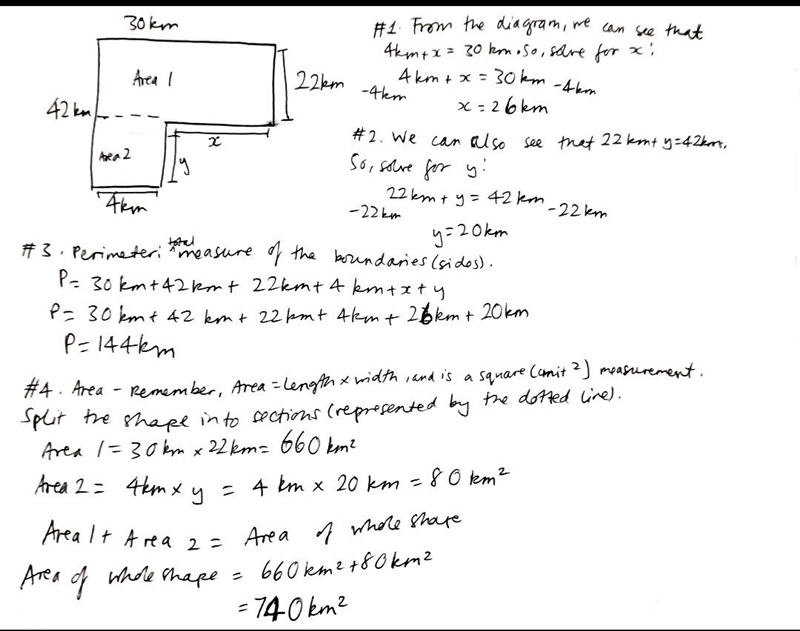 30km
Area 1
22km
42km
x
Area 2
y
4km
#1. From the diagram, we can see that
4km+x = 30 km. So, solve for x:
4km + x = 30km
-4km -4km
x = 26km
#2. We can also see that 22km+y=42km.
So, solve for y:
22km + y = 42km
-22km -22km
y=20km
#3. Perimeter: total measure of the boundaries (sides).
P= 30km+42km+ 22km+4km+x+y
P= 30km+ 42 km+ 22km+ 4km + 26km+ 20km
P=144km
#4. Area - Remember, Area = Length x width, and is a square (unit²) measurement.
Split the shape into sections (represented by the dotted line).
Area 1 = 30km x 22km= 660km²
Area 2 = 4km x y = 4 km x 20 km = 80km²
Area 1+ Area 2 = Area of whole shape
Area of whole shape = 660km²+80km²
=740km²